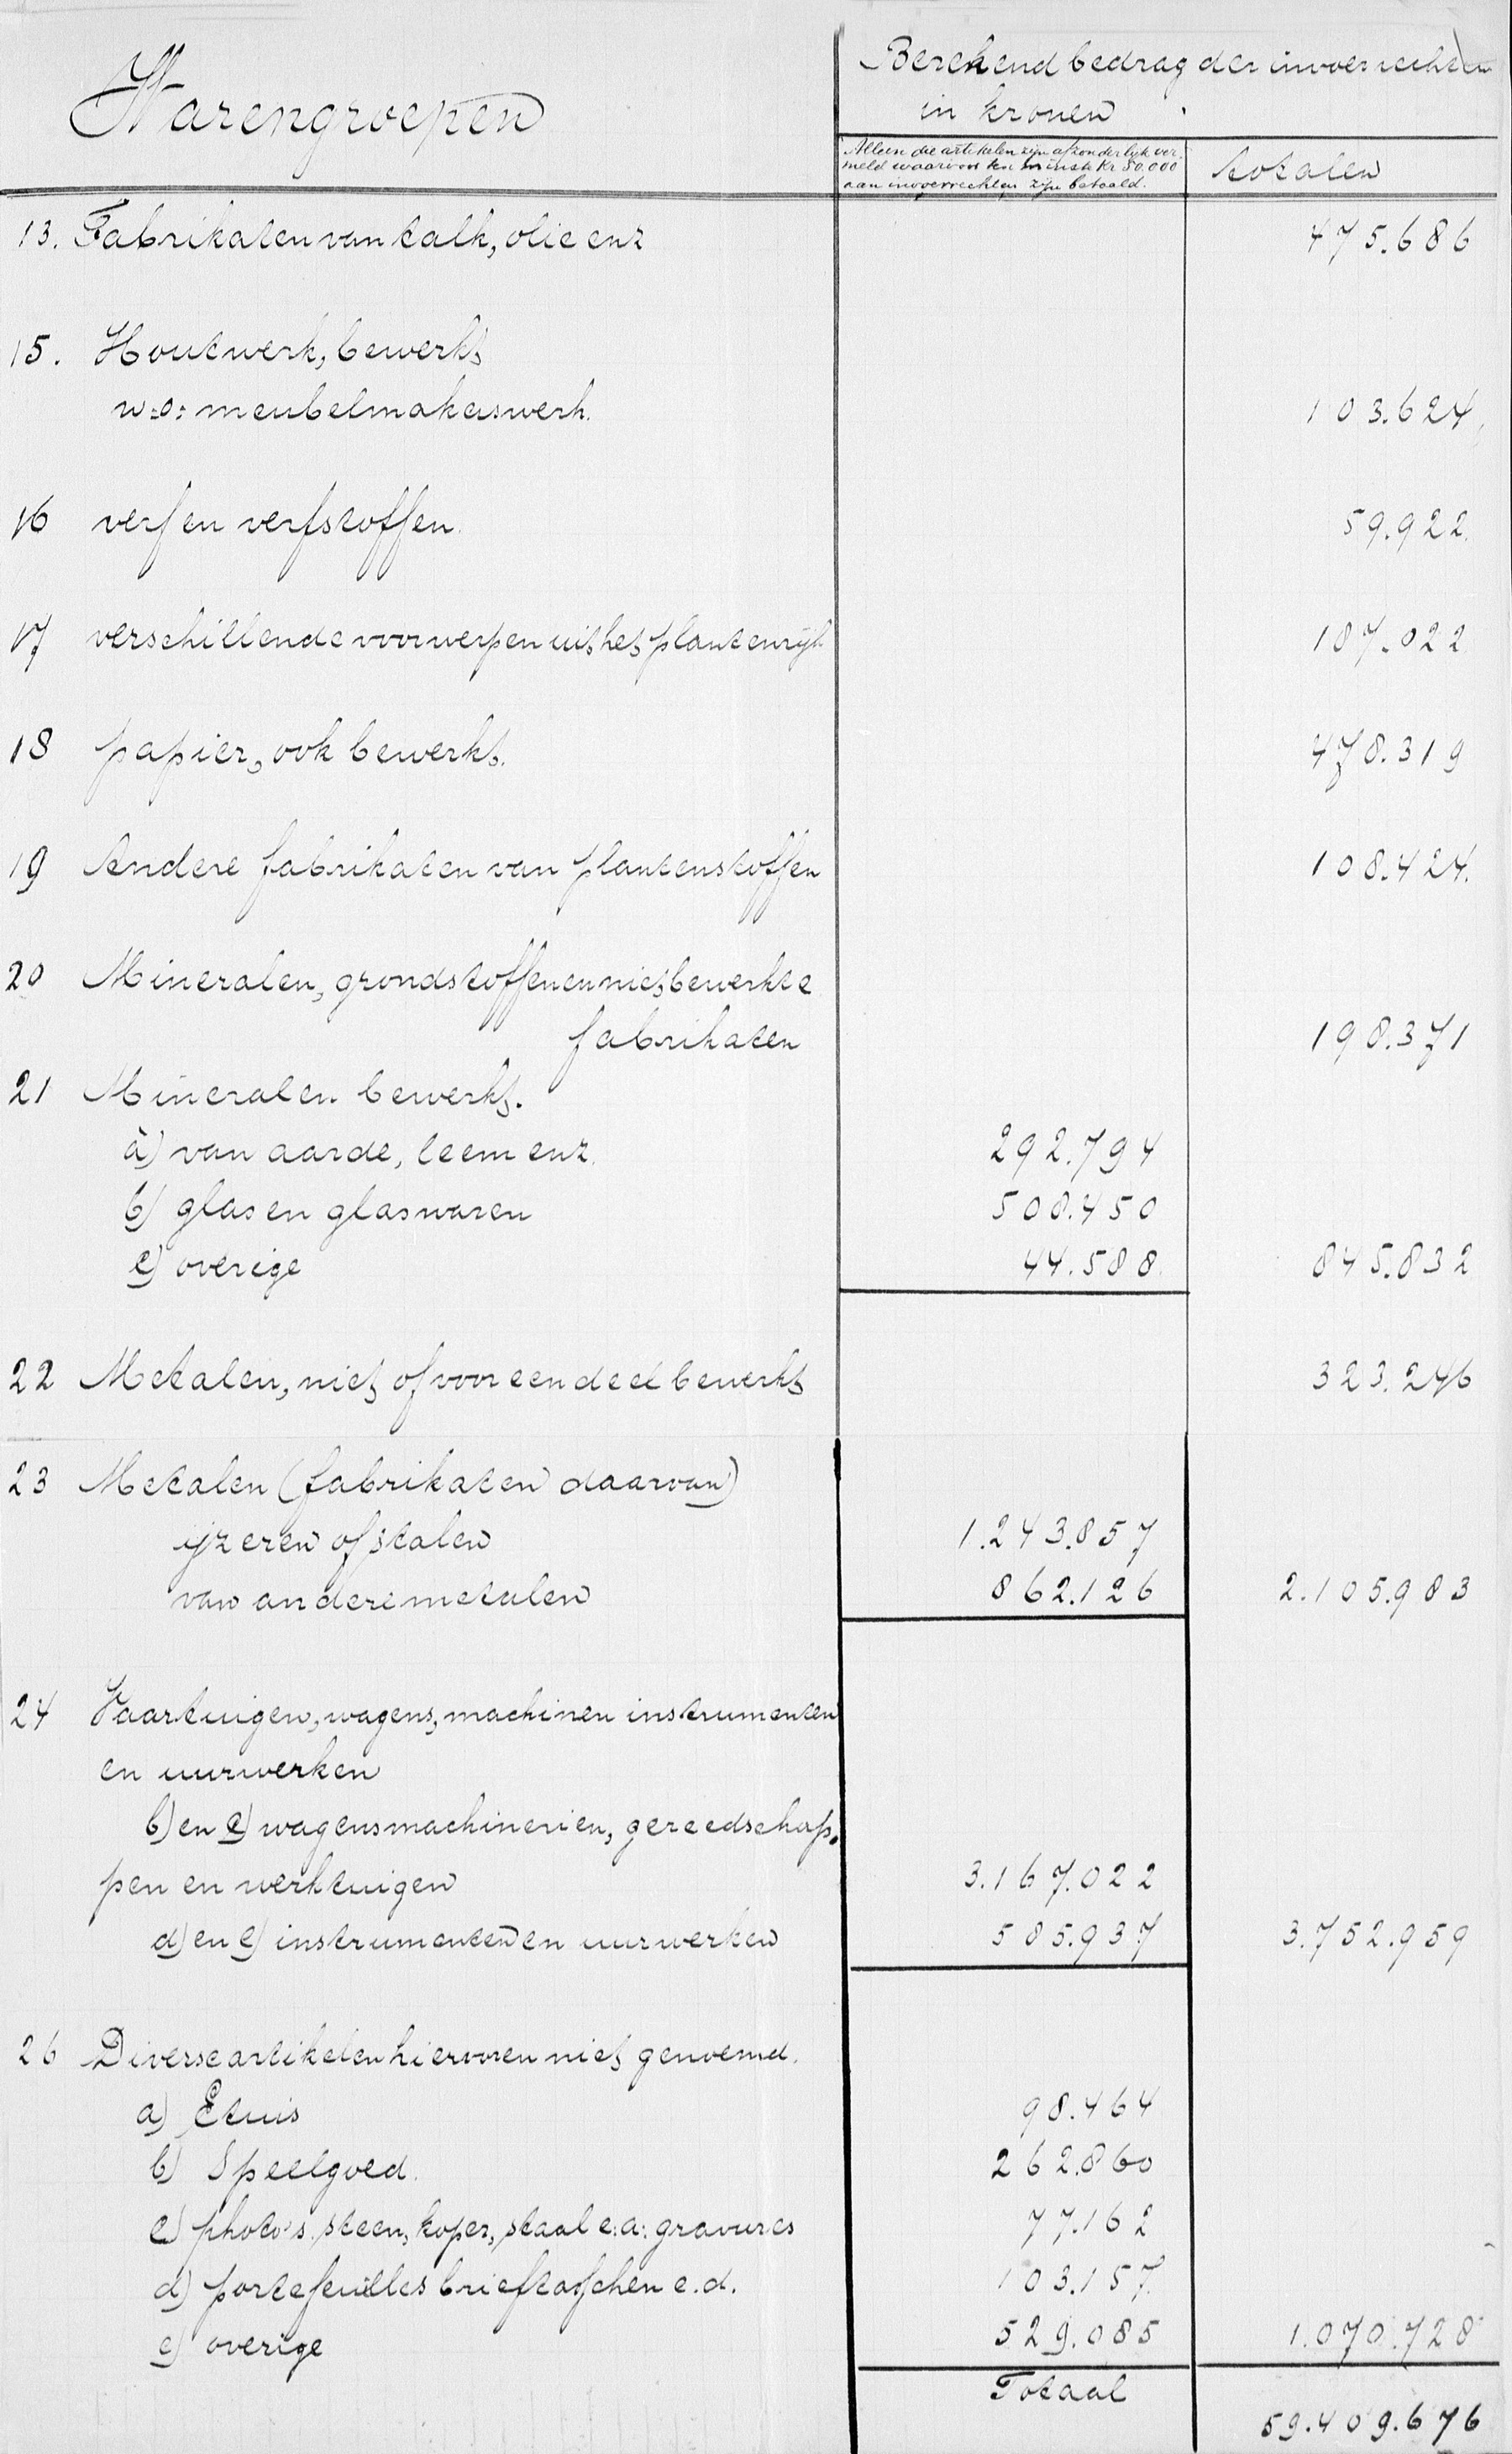 Warengroepen
Berekend bedrag der invoerrechten
in kronen
Alleen die artikelen zijn afzonderlijk ver-
meld waarvoor ten minste Kr 50.000
aan invoerrechten zijn betaald.
totalen
13. Fabrikaten van talk, olie enz 475.686
15. Houtwerk, bewerkt
w:o: meubelmakerswerk. 103.624
16 verf en verfstoffen. 59.922
17 verschillende voorwerpen uit het plantenrijk 187.022
18 papier, ook bewerkt. 478.319
19 Andere fabrikaten van plantenstoffen 108.424.
20 Mineralen, grondstoffen en niet bewerkte
fabrikaten 198.371
21 Mineralen bewerkt.
a) van aarde, leem enz. 292.794
b) glas en glaswaren 508.450
c) overige 44.588 845.832
22 Metalen, niet of voor een deel bewerkt 323.246
23 Metalen (fabrikaten daarvan)
ijzeren of stalen 1.243.857
van andere metalen 862.126 2.105.983
24 Vaartuigen, wagens, machinen instrumenten
en uurwerken
b) en c) wagens machinerien, gereedschap-
pen en werktuigen 3.167.022
d) en e) instrumenten en uurwerken 585.937 3.752.959
26 Diverse artikelen hiervoren niet genoemd.
a) Etuis 98.464
b) Speelgoed. 262.860
c) photo's steen, koper, staal e.a. gravures 77.162
d) portefeuilles brieftasschen e.d. 103.157
e) overige 529.085 1.070.728
Totaal 59.409.676